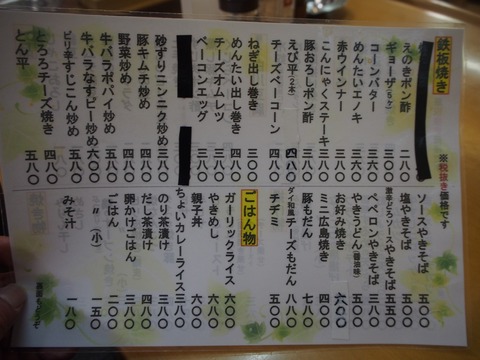 鉄板焼き
※税抜き価格です
えのきポン酢 二八〇
ギョーザ(5ヶ)
コーンバター 三六〇
めんたいエノキ 三八〇
赤ウインナー 三八〇
こんにゃくステーキ 三八〇
豚おろしポン酢
えび平(2本) 四八〇
チーズベーコン
ねぎ出し巻き 三〇〇
めんたい出し巻き 四八〇
チーズオムレツ 三八〇
ベーコンエッグ 三八〇
砂ずりニンニク炒め 三八〇
豚キムチ炒め 五八〇
野菜炒め 四八〇
牛バラポパイ炒め 五八〇
牛バラなすピー炒め 六〇〇
ピリ辛すじこん炒め 五八〇
とろろチーズ焼き 四八〇
とん平 五八〇
ソースやきそば 五〇〇
塩やきそば 五〇〇
激辛どろソースやきそば 五五〇
ペペロンやきそば
やきうどん(醤油味)
お好み焼き 六〇〇
ミニ広島焼き 四八〇
豚もだん 七八〇
ダイ和風チーズもだん 八八〇
チヂミ
ごはん物
ガーリックライス 六〇〇
やきめし 六〇〇
親子丼 六八〇
ちょいカレーライス 三八〇
のり茶漬け 三八〇
だし茶漬け 四八〇
卵かけごはん 三八〇
ごはん 二〇〇
〃(小) 一五〇
みそ汁 一八〇
裏面もどうぞ